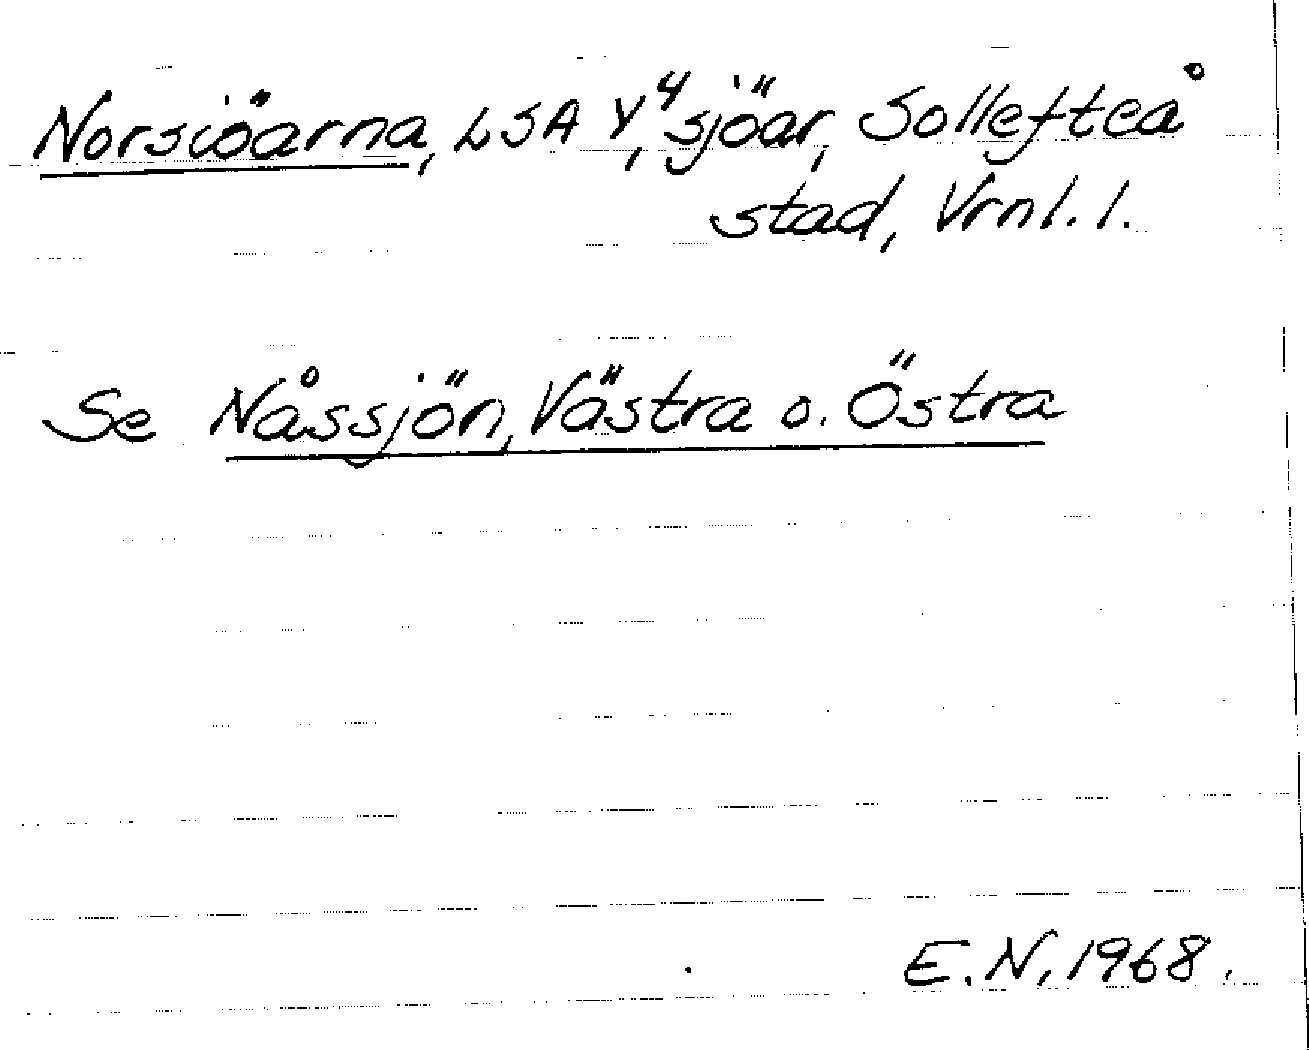 Norsiöarna, LSA Y⁴, sjöar, Sollefteå
stad, Vrnl. l.
Se Nåssjön, Västra o. Östra
E.N. 1968.